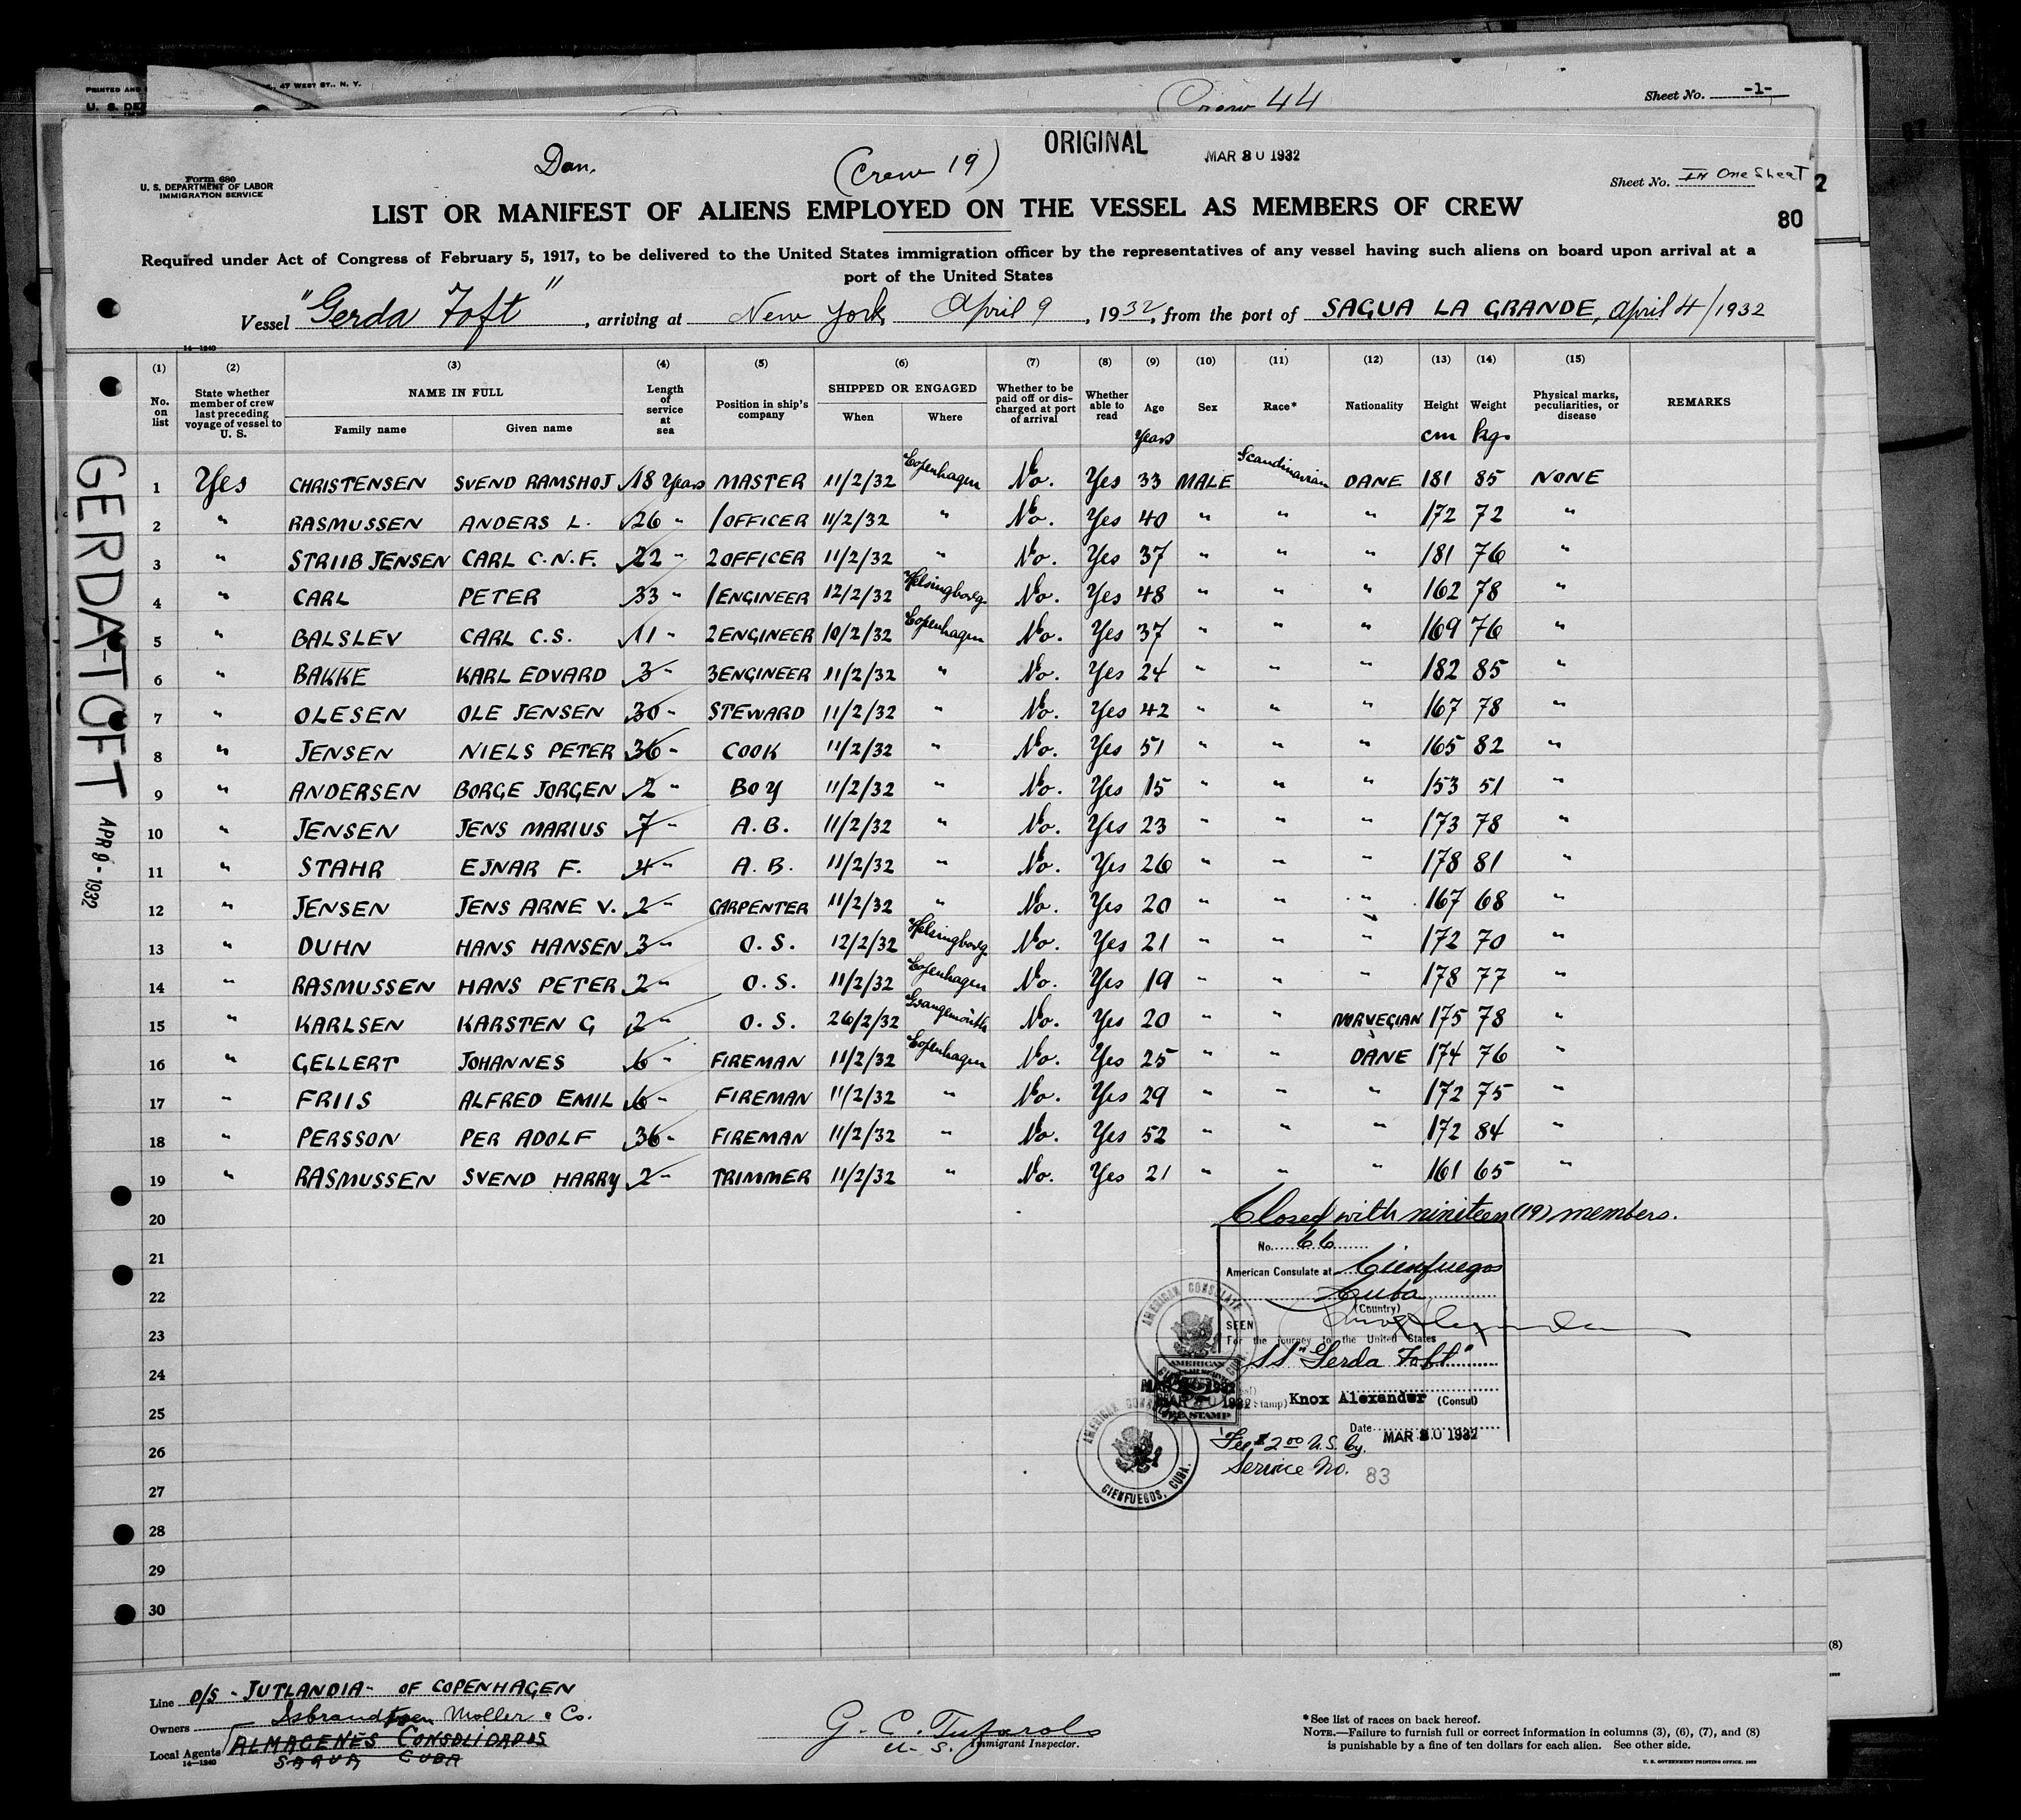 PRINTED AND
47 WEST ST., N. Y.
U. S. DE
Crew 44
Sheet No. -1-
ORIGINAL
MAR 30 1932
Dan.
(Crew 19)
Form 680
U. S. DEPARTMENT OF LABOR
IMMIGRATION SERVICE
Sheet No. IN One Sheet
2
80
LIST OR MANIFEST OF ALIENS EMPLOYED ON THE VESSEL AS MEMBERS OF CREW
Required under Act of Congress of February 5, 1917, to be delivered to the United States immigration officer by the representatives of any vessel having such aliens on board upon arrival at a
port of the United States
Vessel "Gerda Toft", arriving at New York April 9, 1932, from the port of SAGUA LA GRANDE, April 4/1932
14—1240
(1) (2) (3) (4) (5) (6) (7) (8) (9) (10) (11) (12) (13) (14) (15)
No. on list | State whether member of crew last preceding voyage of vessel to U. S. | NAME IN FULL Family name Given name | Length of service at sea | Position in ship's company | SHIPPED OR ENGAGED When Where | Whether to be paid off or discharged at port of arrival | Whether able to read | Age Years | Sex | Race* | Nationality | Height cm | Weight kg. | Physical marks, peculiarities, or disease | REMARKS
1 Yes CHRISTENSEN SVEND RAMSHOJ 18 Years MASTER 11/2/32 Copenhagen No. Yes 33 MALE Scandinavian DANE 181 85 NONE
2 " RASMUSSEN ANDERS L. 26 " 1OFFICER 11/2/32 " No. Yes 40 " " " 172 72 "
3 " STRIIB JENSEN CARL C.N.F. 22 " 2OFFICER 11/2/32 " No. Yes 37 " " " 181 76 "
4 " CARL PETER 33 " 1ENGINEER 12/2/32 Helsingborg. No. Yes 48 " " " 162 78 "
5 " BALSLEV CARL C.S. 11 " 2ENGINEER 10/2/32 Copenhagen No. Yes 37 " " " 169 76 "
6 " BAKKE KARL EDVARD 3 " 3ENGINEER 11/2/32 " No. Yes 24 " " " 182 85 "
7 " OLESEN OLE JENSEN 30 " STEWARD 11/2/32 " No. Yes 42 " " " 167 78 "
8 " JENSEN NIELS PETER 36 " COOK 11/2/32 " No. Yes 51 " " " 165 82 "
9 " ANDERSEN BORGE JORGEN 2 " BOY 11/2/32 " No. Yes 15 " " " 153 51 "
10 " JENSEN JENS MARIUS 7 " A.B. 11/2/32 " No. Yes 23 " " " 173 78 "
11 " STAHR EJNAR F. 4 " A.B. 11/2/32 " No. Yes 26 " " " 178 81 "
12 " JENSEN JENS ARNE V. 2 " CARPENTER 11/2/32 " No. Yes 20 " " " 167 68 "
13 " DUHN HANS HANSEN 3 " O.S. 12/2/32 Helsingborg. No. Yes 21 " " " 172 70 "
14 " RASMUSSEN HANS PETER 2 " O.S. 11/2/32 Copenhagen No. Yes 19 " " " 178 77 "
15 " KARLSEN KARSTEN G 2 " O.S. 26/2/32 Grangemouth No. Yes 20 " " NORVEGIAN 175 78 "
16 " GELLERT JOHANNES 6 " FIREMAN 11/2/32 Copenhagen No. Yes 25 " " DANE 174 76 "
17 " FRIIS ALFRED EMIL 6 " FIREMAN 11/2/32 " No. Yes 29 " " " 172 75 "
18 " PERSSON PER ADOLF 36 " FIREMAN 11/2/32 " No. Yes 52 " " " 172 84 "
19 " RASMUSSEN SVEND HARRY 2 " TRIMMER 11/2/32 " No. Yes 21 " " " 161 65 "
20
21
22
23
24
25
26
27
28
29
30
GERDA TOFT
APR 9 - 1932
Closed with nineteen (19) members.
No. 66
American Consulate at Cienfuegos
Cuba
(Country)
Knox Alexander
SEEN
For the journey to the United States
SS "Gerda Toft"
Knox Alexander (Consul)
Date MAR 30 1932
AMERICAN CONSULATE
AMERICAN
FEE STAMP
MAR 30 1932
AMERICAN CONSULATE
CIENFUEGOS, CUBA.
Fee $2.00 U.S. Cy.
Service No. 83
Line D/S - JUTLANDIA - OF COPENHAGEN
Owners Isbrandtsen Moller & Co.
Local Agents ALMACENES CONSOLIDADOS
SAGUA CUBA
14—1240
G. C. Tufarolo
U. S. Immigrant Inspector.
*See list of races on back hereof.
NOTE.—Failure to furnish full or correct information in columns (3), (6), (7), and (8)
is punishable by a fine of ten dollars for each alien. See other side.
U. S. GOVERNMENT PRINTING OFFICE: 1929
(8)